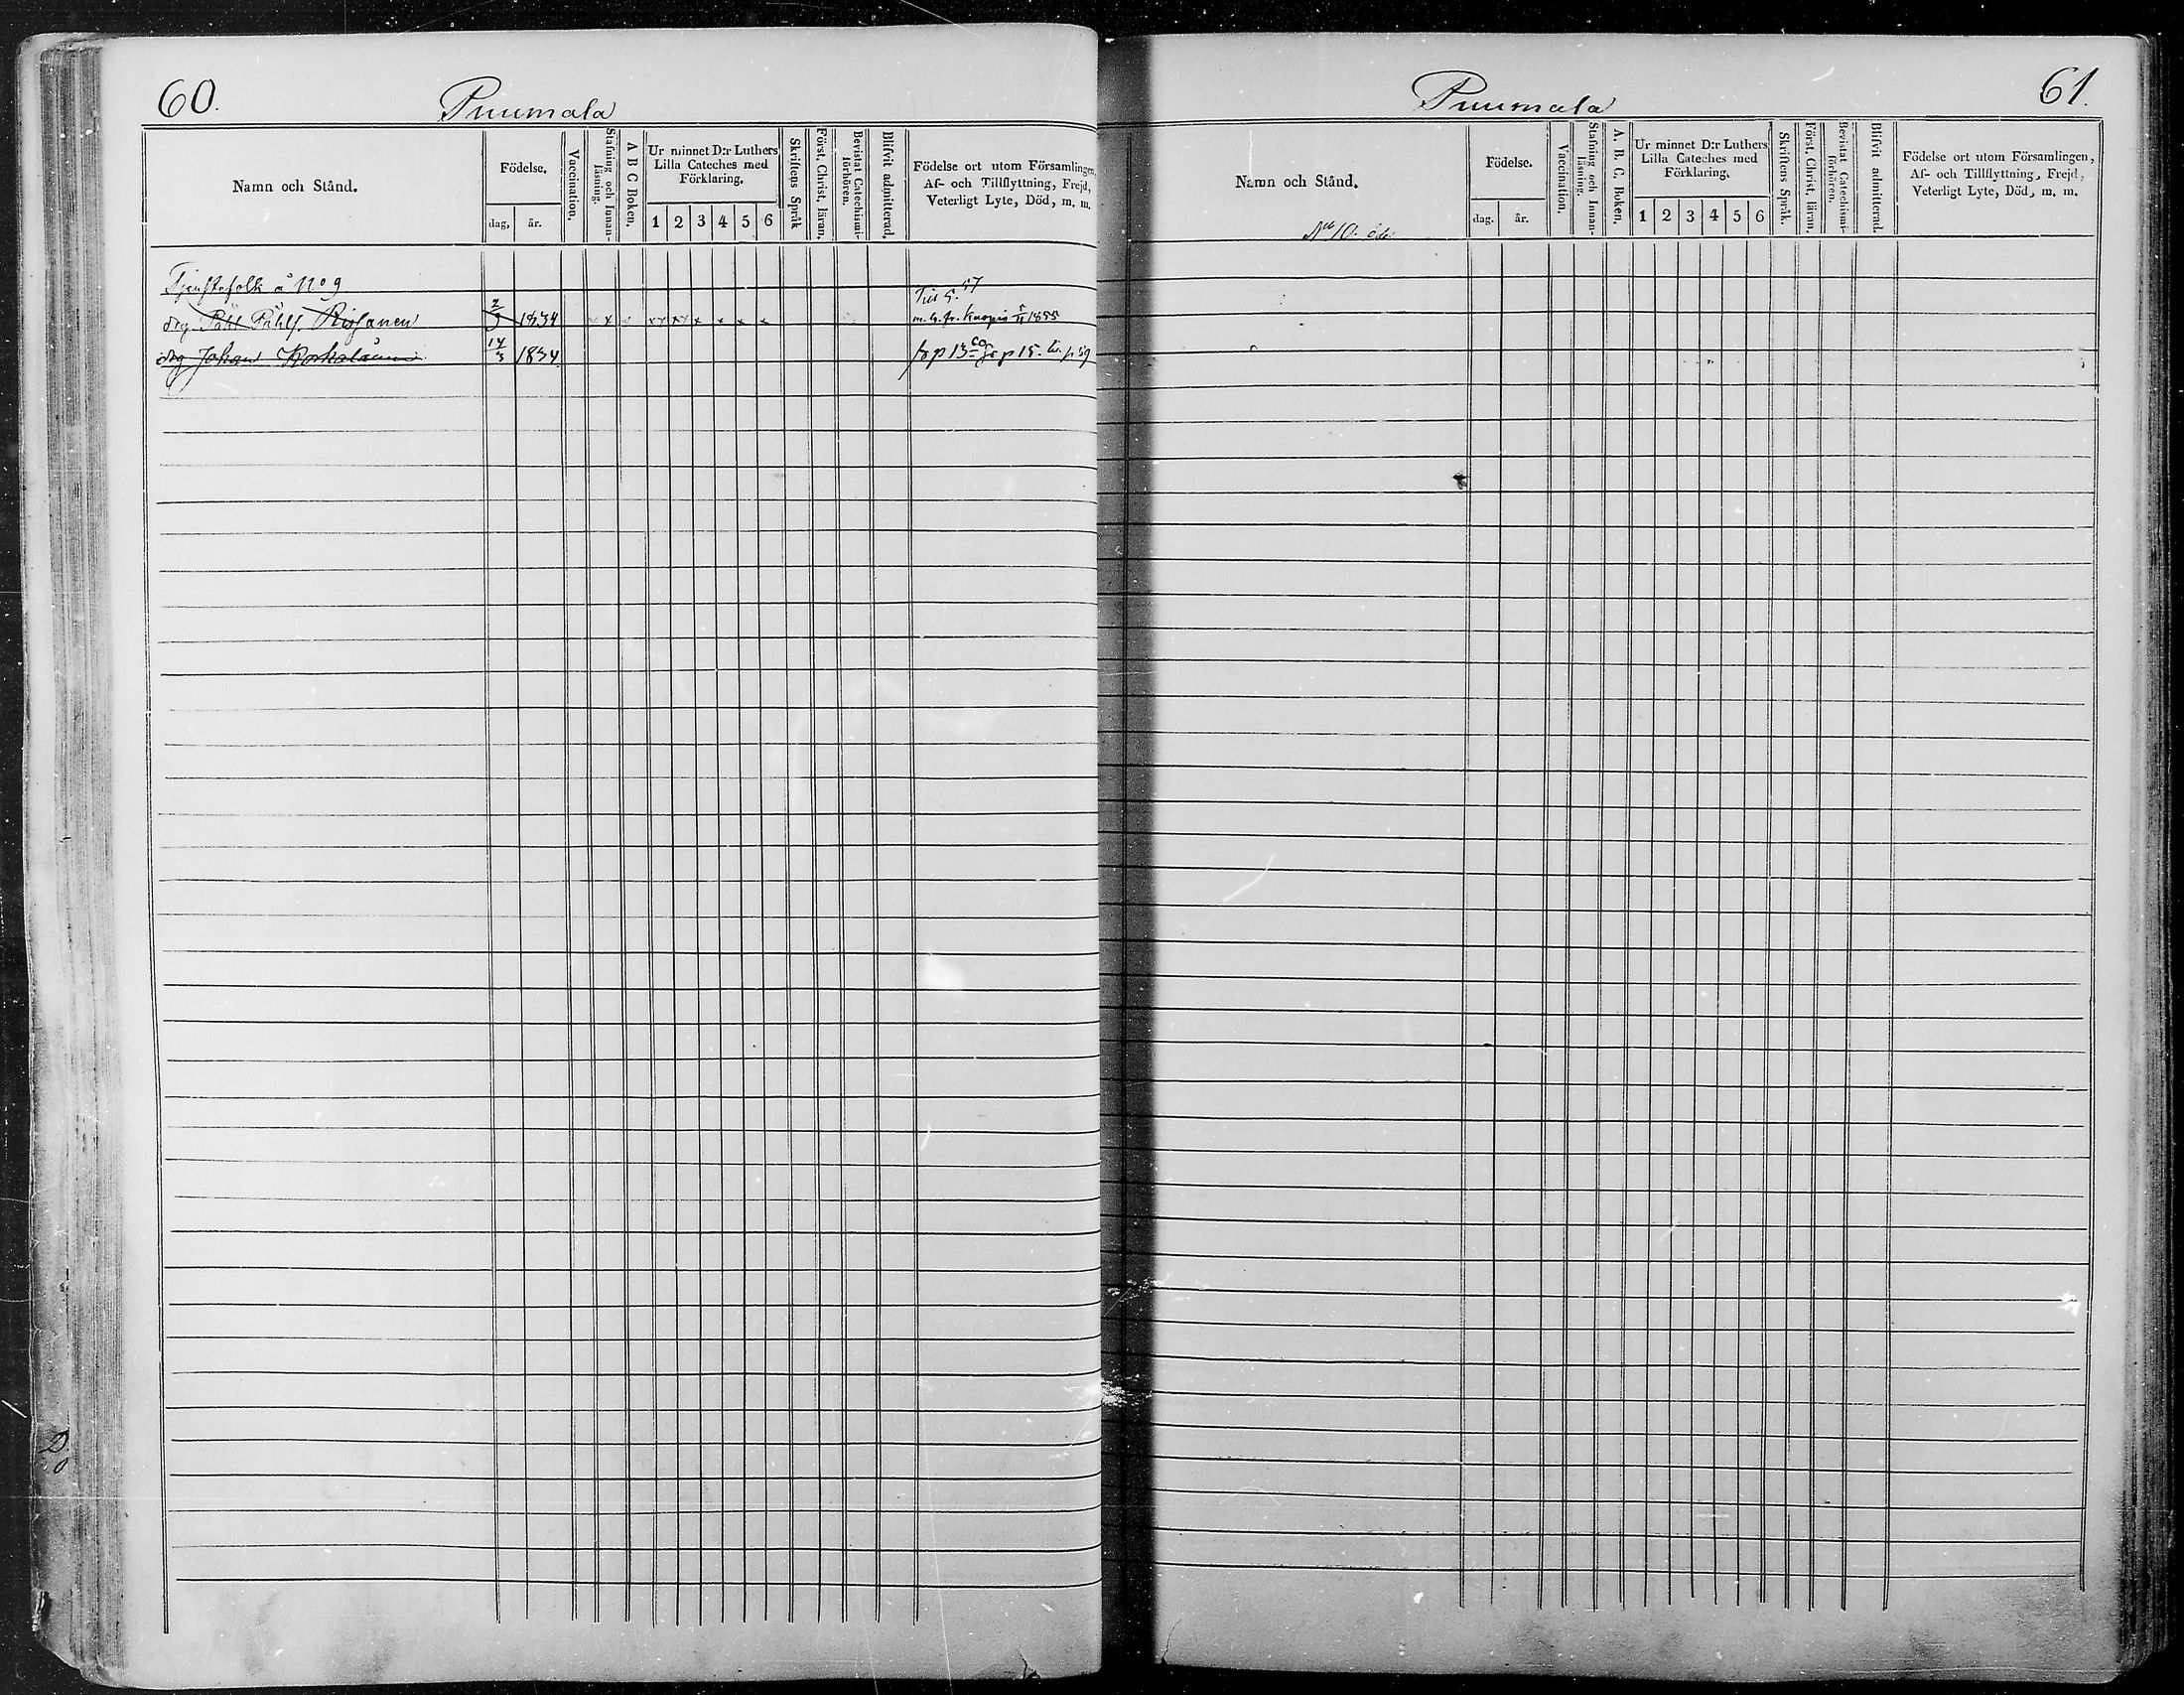 60.
Puumala
Namn och Stånd.
Födelse.
dag, år.
Vaccination.
Stafning och Innan-
läsning.
A B C Boken.
Ur minnet D:r Luthers
Lilla Cateches med
Förklaring.
1 2 3 4 5 6
Skriftens Språk
Först, Christ, läran.
Bevistat Catechismi-
förhören.
Blifvit admitterad.
Födelse ort utom Församlingen,
Af- och Tillflyttning, Frejd,
Veterligt Lyte, Död, m. m.
Tjenstefolk å No 9
drg Påhl Påhlss. Rissanen 2/3 1834 x x x x x x x m. b. fr. Kuopio 1855
drg Johan 14/3 1834 fr p 13 p 15. p 59
61.
Puumala
Namn och Stånd.
No 10. öde
Födelse.
dag. år.
Vaccination.
Stafning och Innan-
läsning.
A. B. C. Boken.
Ur minnet D:r Luthers
Lilla Cateches med
Förklaring.
1 2 3 4 5 6
Skriftens Språk.
Först, Christ, läran.
Bevistat Catechismi-
förhören.
Blifvit admitterad.
Födelse ort utom Församlingen,
Af- och Tillflyttning, Frejd,
Veterligt Lyte, Död, m. m.